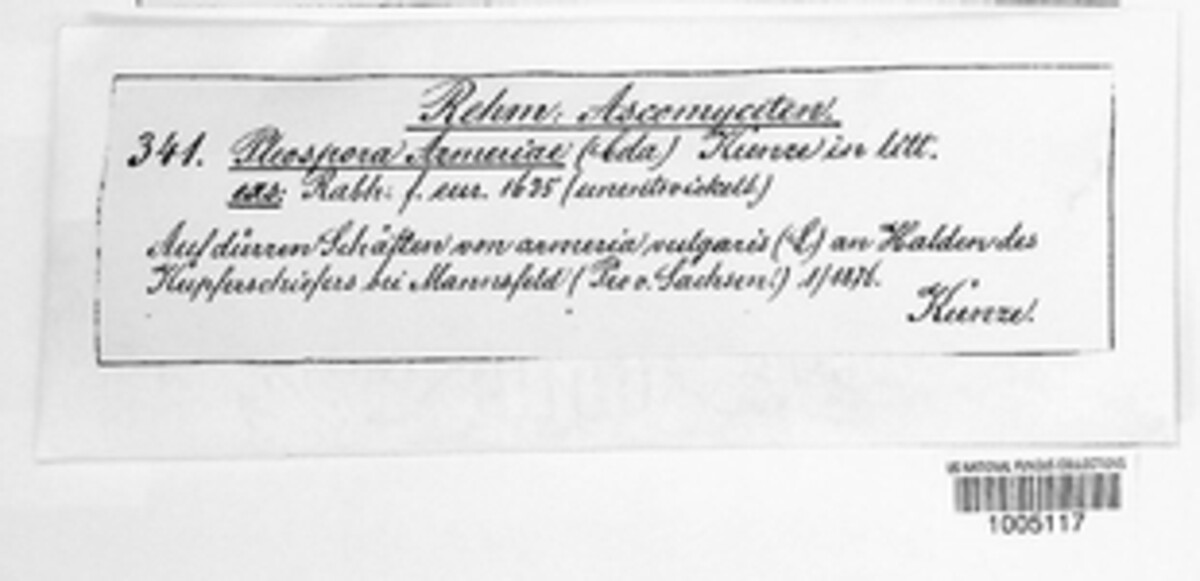 Rehm: Ascomyceten.
341. Pleospora Armeriae (Cda) Kunze in litt.
exs: Rabh. f. eur. 1675 (unentwickelt)
Auf dürren Schäften von armeria vulgaris (L) an Halden des
Kupferschiefers bei Mannsfeld (Prov. Sachsen.) 1/1876.
Kunze.
US NATIONAL FUNGUS COLLECTIONS
1005117